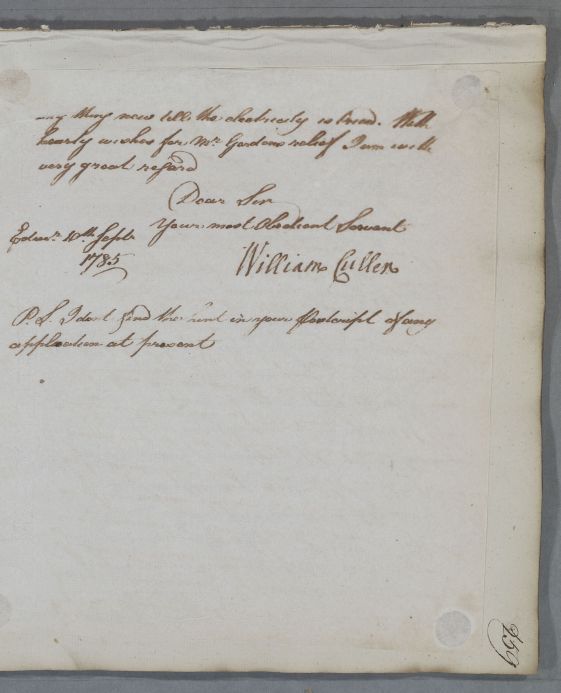 any thing new till the electricity is tried. With
hearty wishes for Mr. Gordons relief I am with
very great regard
Dear Sir
Your most Obedient Servant
Edinr. 10th Septr.
1785
William Cullen
P. S. I dont find the hint in your Postcript of any
application at present
259